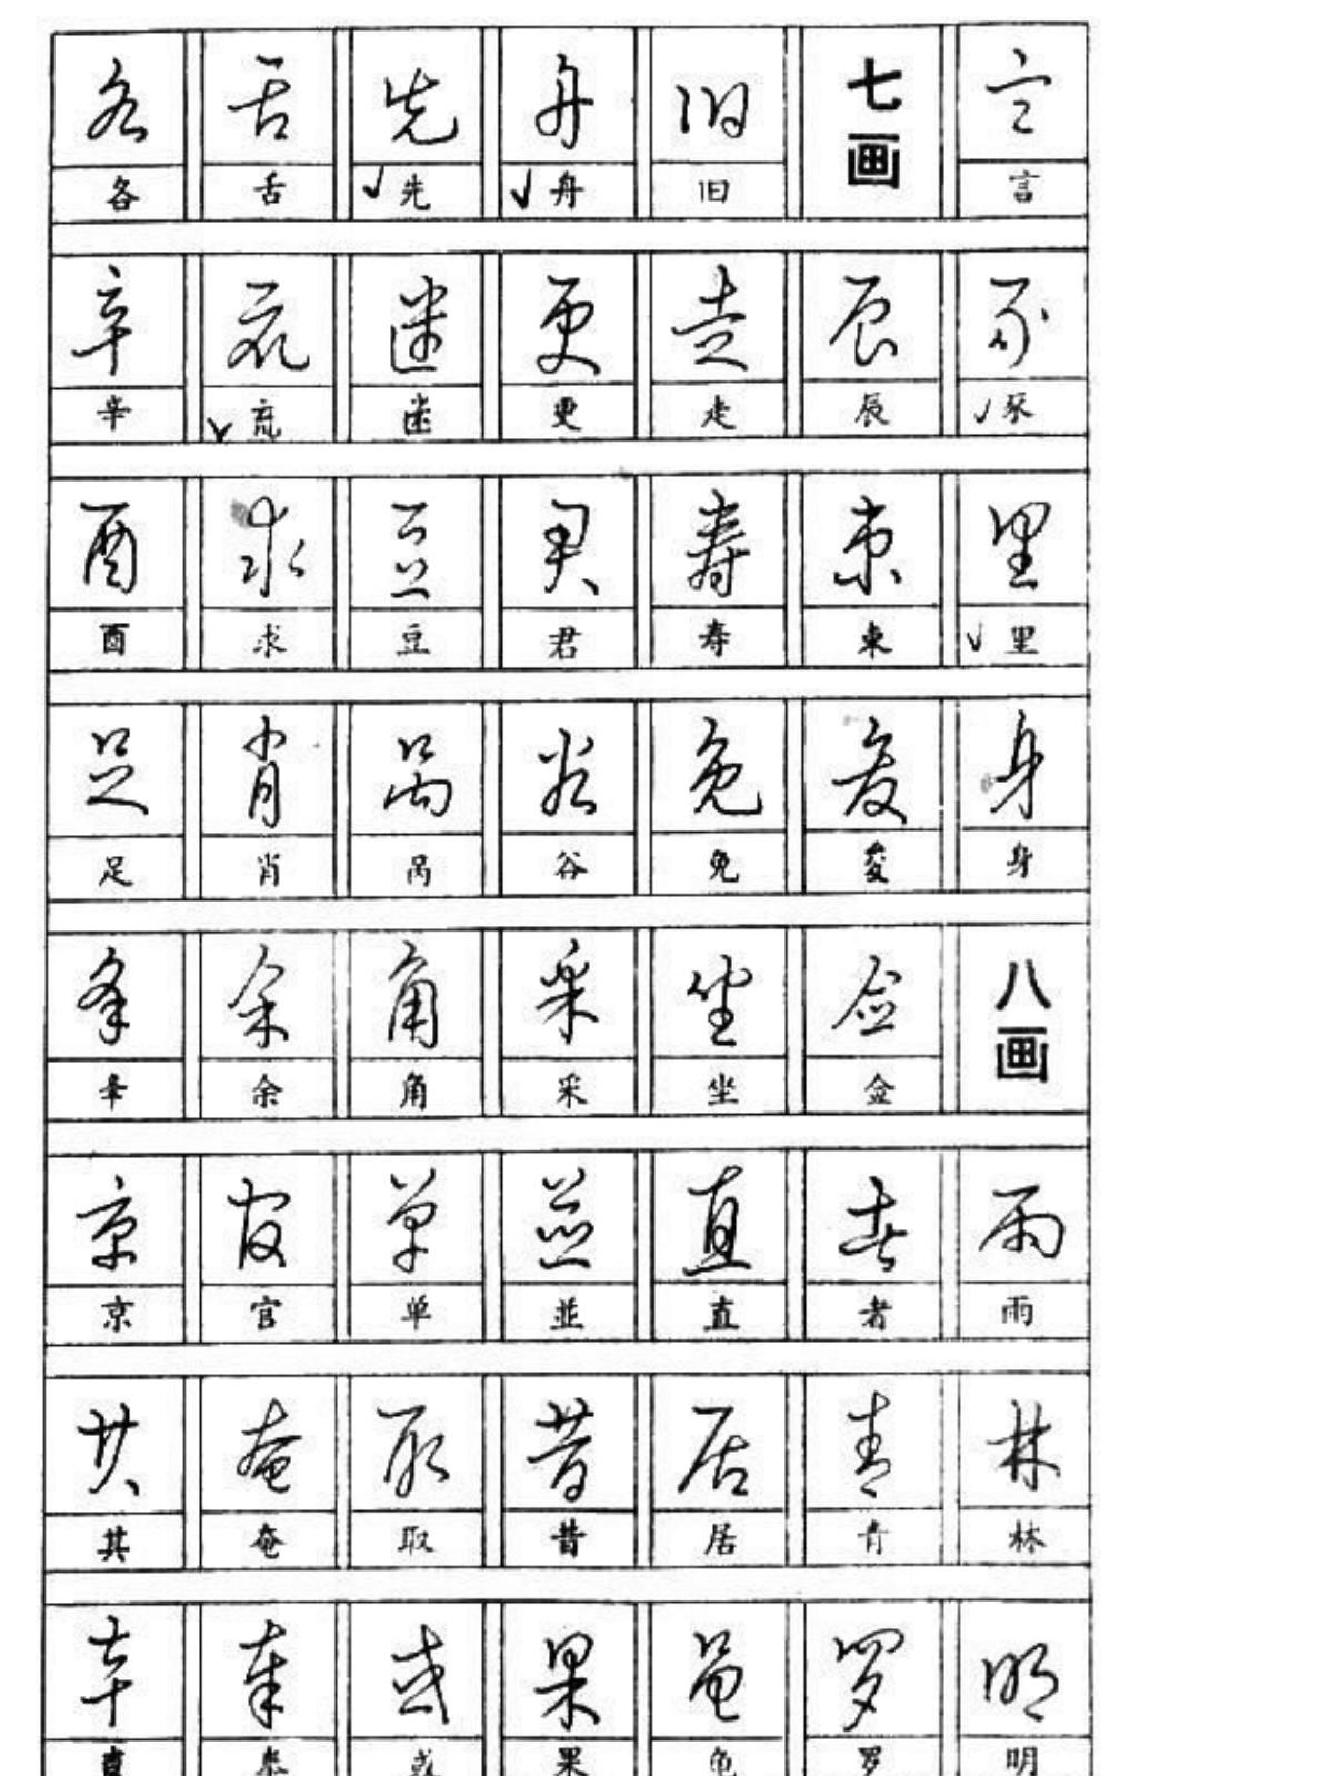 各 舌 先 舟 旧 七画 言
各 舌 先 舟 旧 言
辛 㐬 更 走 辰 豕
辛 㐬 更 走 辰 豕
酉 求 豆 君 寿 束 里
酉 求 豆 君 寿 束 里
足 肖 呙 谷 免 身
足 肖 呙 谷 免 身
夆 余 角 采 坐 佥 八画
夆 余 角 采 坐 佥
京 官 单 並 直 者 雨
京 官 单 並 直 者 雨
其 奄 取 昔 居 青 林
其 奄 取 昔 居 青 林
奉 或 果 黾 罗 明
或 果 黾 罗 明